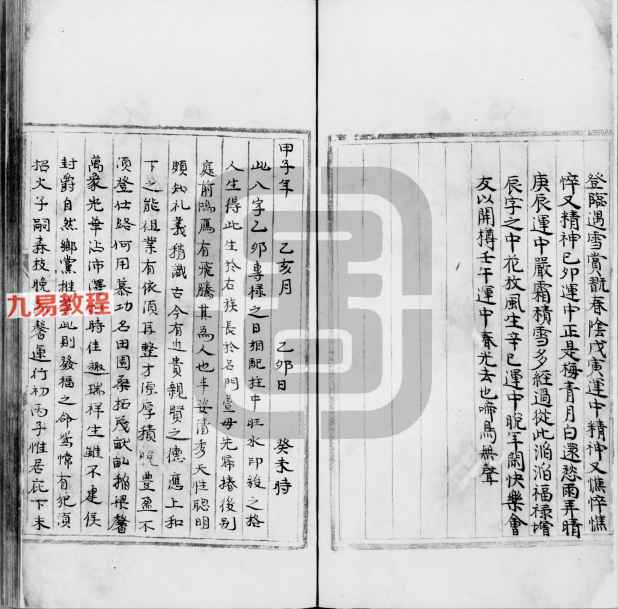 登臨遇雪賞翫春陰戊寅運中精神又憔悴憔
悴又精神己卯運中正是梅青月白還愁雨弄晴
庚辰運中嚴霜積雪多經過從此滔滔福祿增
辰字之中花放風生辛巳運中晚年閙快樂會
友以開樽壬午運中春光去也啼鳥無聲
甲子年 乙亥月 乙卯日 癸未時
此八字乙卯專祿之日相配拄中旺水印綬之格
人生得此生於右族長於名門萱母先歸捲後别
庭前鴻鴈有飛騰其為人也丰姿清秀天性聰明
頗知礼義稽識古今有近貴親賢之德應上和
下之能祖業有依須再整才源厚積 豊盈不
須登仕路何用慕功名田園桑柘 馨
萬象光華沾沛 時佳趣瑞祥生雖不建侯
封爵自然鄉黨推 此則發福之命篤幃有犯須
招大子嗣森枝晚 馨運行初丙子惟居庇下未
九易教程